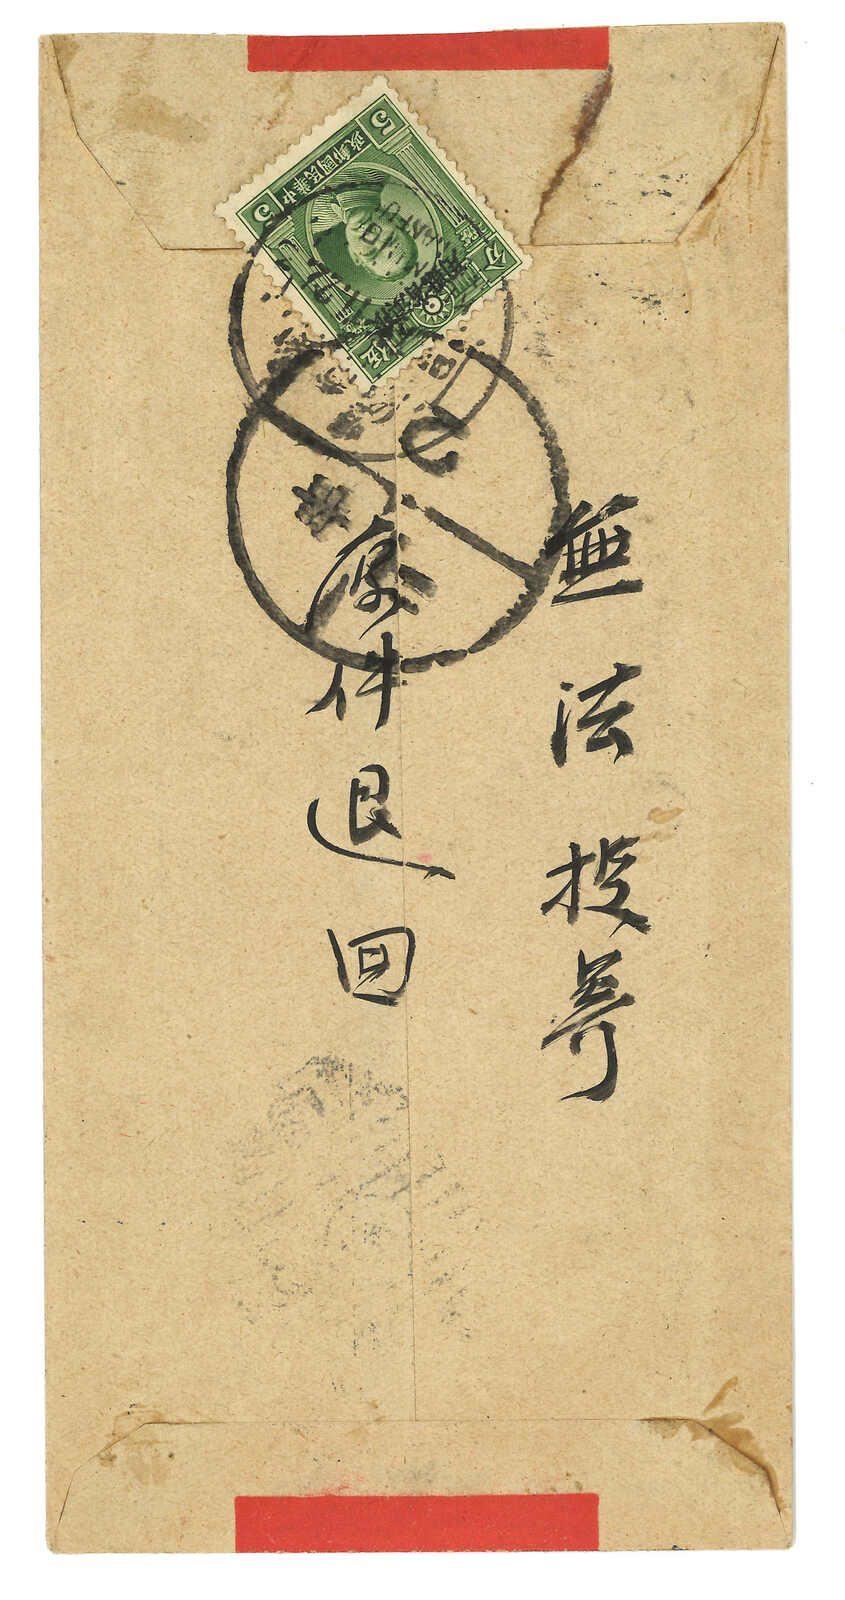 無法投寄
原件退回
中華民國郵政
5
5
伍
分